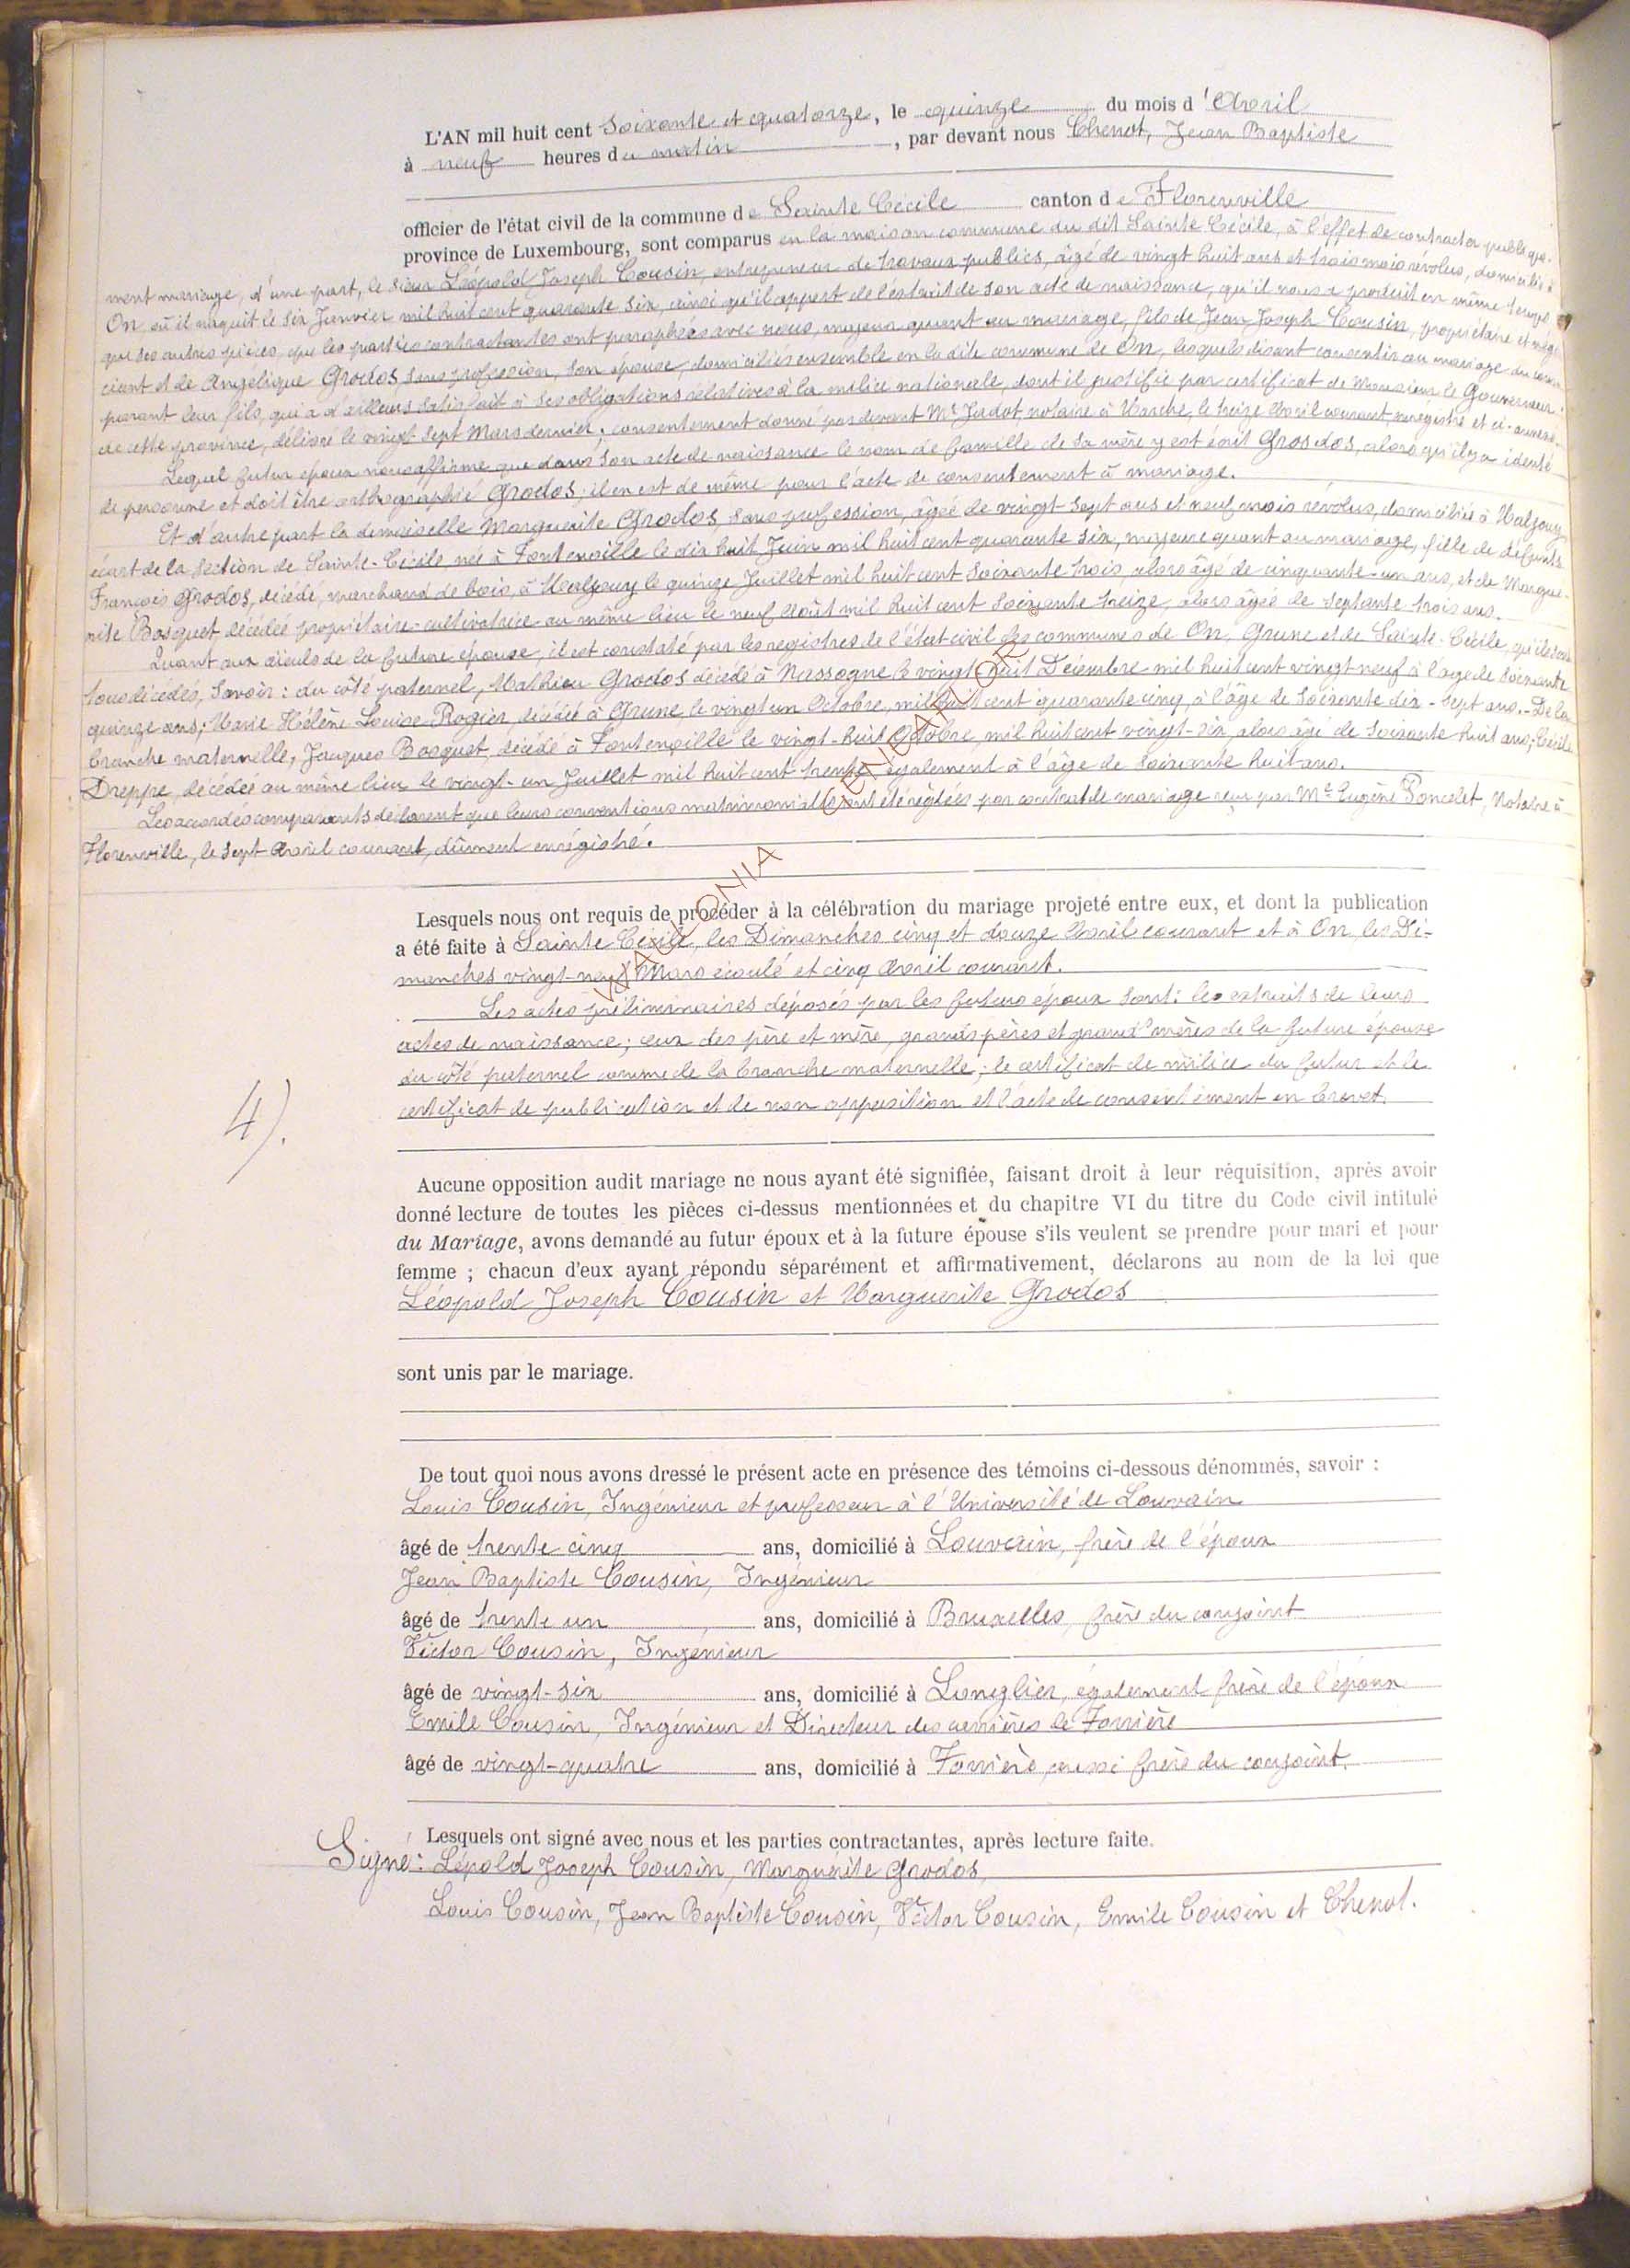 L'AN mil huit cent Soixante et quatorze, le quinze du mois d'Avril
à neuf heures du matin, par devant nous Chenot, Jean Baptiste
officier de l'état civil de la commune de Sainte Cécile canton de Florenville
province de Luxembourg, sont comparus en la maison commune du dit Sainte Cécile, à l'effet de contracter publique-
ment mariage, d'une part, le sieur Léopold Joseph Cousin, entrepreneur de travaux publics, âgé de vingt huit ans et trois mois révolus, domicilié à
On, où il naquit le six Janvier mil huit cent quarante six, ainsi qu'il appert de l'extrait de son acte de naissance, qu'il nous a produit en même temps
que ses autres pièces, que les parties contractantes ont paraphées avec nous, majeur quant au mariage, fils de Jean Joseph Cousin, propriétaire et négo-
ciant et de Angélique Grodos, sans profession, son épouse, domiciliés ensemble en la dite commune de On, lesquels disant consentir au mariage du
parant leur fils, qui a d'ailleurs satisfait à ses obligations relatives à la milice nationale, dont il justifie par certificat de Monsieur le Gouverneur
de cette province, délivré le vingt sept Mars dernier; consentement donné par devant Me Jadot, notaire à Marche, le treize Avril courant, enrégistré et ci-annexé.
Lequel futur époux nous affirme que dans son acte de naissance le nom de famille de sa mère y est écrit Grosdos, alors qu'il y a identé
de personne et doit être orthographié Grodos; il en est de même pour l'acte de consentement à mariage.
Et d'autre part la demoiselle Marguerite Grodos, sans profession, âgée de vingt sept ans et neuf mois révolus, domiciliée à
écart de la section de Sainte-Cécile née à Fontenoille le dix huit Juin mil huit cent quarante six, majeure quant au mariage, fille de défunts
François Grodos, décédé, marchand de bois, à le quinze Juillet mil huit cent soixante trois, alors âgé de cinquante-un ans, et de Margue-
rite Bosquet, décédée propriétaire-cultivatrice au même lieu le neuf Août mil huit cent soixante treize, alors âgée de septante trois ans.
Quant aux aïeuls de la future épouse, il est constaté par les registres de l'état civil des communes de On, Grune et de Sainte-Cécile, qu'ils sont
tous décédés, savoir: du côté paternel, Mathieu Grodos décédé à Nassogne le vingt huit Décembre mil huit cent vingt neuf à l'age de soixante
quinze ans; Marie Hélène Louise Rogier, décédée à Grune, le vingt un Octobre, mil huit cent quarante cinq, à l'âge de soixante dix-sept ans.- De la
branche maternelle, Jacques Bosquet, décédé à Fontenoille le vingt-huit Octobre, mil huit cent vingt-six, alors âgé de soixante huit ans; Cécile
Dreppe, décédée au même lieu le vingt-un Juillet mil huit cent trente également à l'âge de soixante huit ans.
Les accordés comparants déclarent que leurs conventions matrimoniales ont été réglées par contrat de mariage reçu par Me Eugène Poncelet, Notaire à
Florenville, le sept Avril courant, dûment enrégistré.
Lesquels nous ont requis de procéder à la célébration du mariage projeté entre eux, et dont la publication
a été faite à Sainte Cécile, les Dimanches cinq et douze Avril courant et à On, les Di-
manches vingt-neuf Mars écoulé et cinq Avril courant.
Les actes préliminaires déposés par les futurs époux sont: les extraits de leurs
actes de naissance; ceux des père et mère, grands pères et grand'mères de la future épouse
du côté paternel comme de la branche maternelle; le certificat de milice du futur et le
certificat de publication et de non opposition et l'acte de consentement en brevet.
4).
Aucune opposition audit mariage ne nous ayant été signifiée, faisant droit à leur réquisition, après avoir
donné lecture de toutes les pièces ci-dessus mentionnées et du chapitre VI du titre du Code civil intitulé
du Mariage, avons demandé au futur époux et à la future épouse s'ils veulent se prendre pour mari et pour
femme ; chacun d'eux ayant répondu séparément et affirmativement, déclarons au nom de la loi que
Léopold Joseph Cousin et Marguerite Grodos
sont unis par le mariage.
De tout quoi nous avons dressé le présent acte en présence des témoins ci-dessous dénommés, savoir :
Louis Cousin, Ingénieur et professeur à l'Université de Louvain
âgé de trente cinq ans, domicilié à Louvain, frère de l'époux
Jean Baptiste Cousin, Ingénieur
âgé de trente un ans, domicilié à Bruxelles, frère du conjoint
Victor Cousin, Ingénieur
âgé de vingt-six ans, domicilié à Longlier, également frère de l'époux
Emile Cousin, Ingénieur et Directeur des carrières de Forrière
âgé de vingt-quatre ans, domicilié à Forrière, aussi frère du conjoint.
Lesquels ont signé avec nous et les parties contractantes, après lecture faite.
Signé: Lépold Joseph Cousin, Marguérite Grodos,
Louis Cousin, Jean Baptiste Cousin, Victor Cousin, Emile Cousin et Chenot.